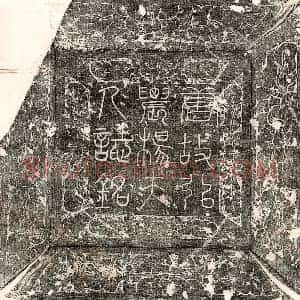 唐故弘
農楊夫
人誌銘